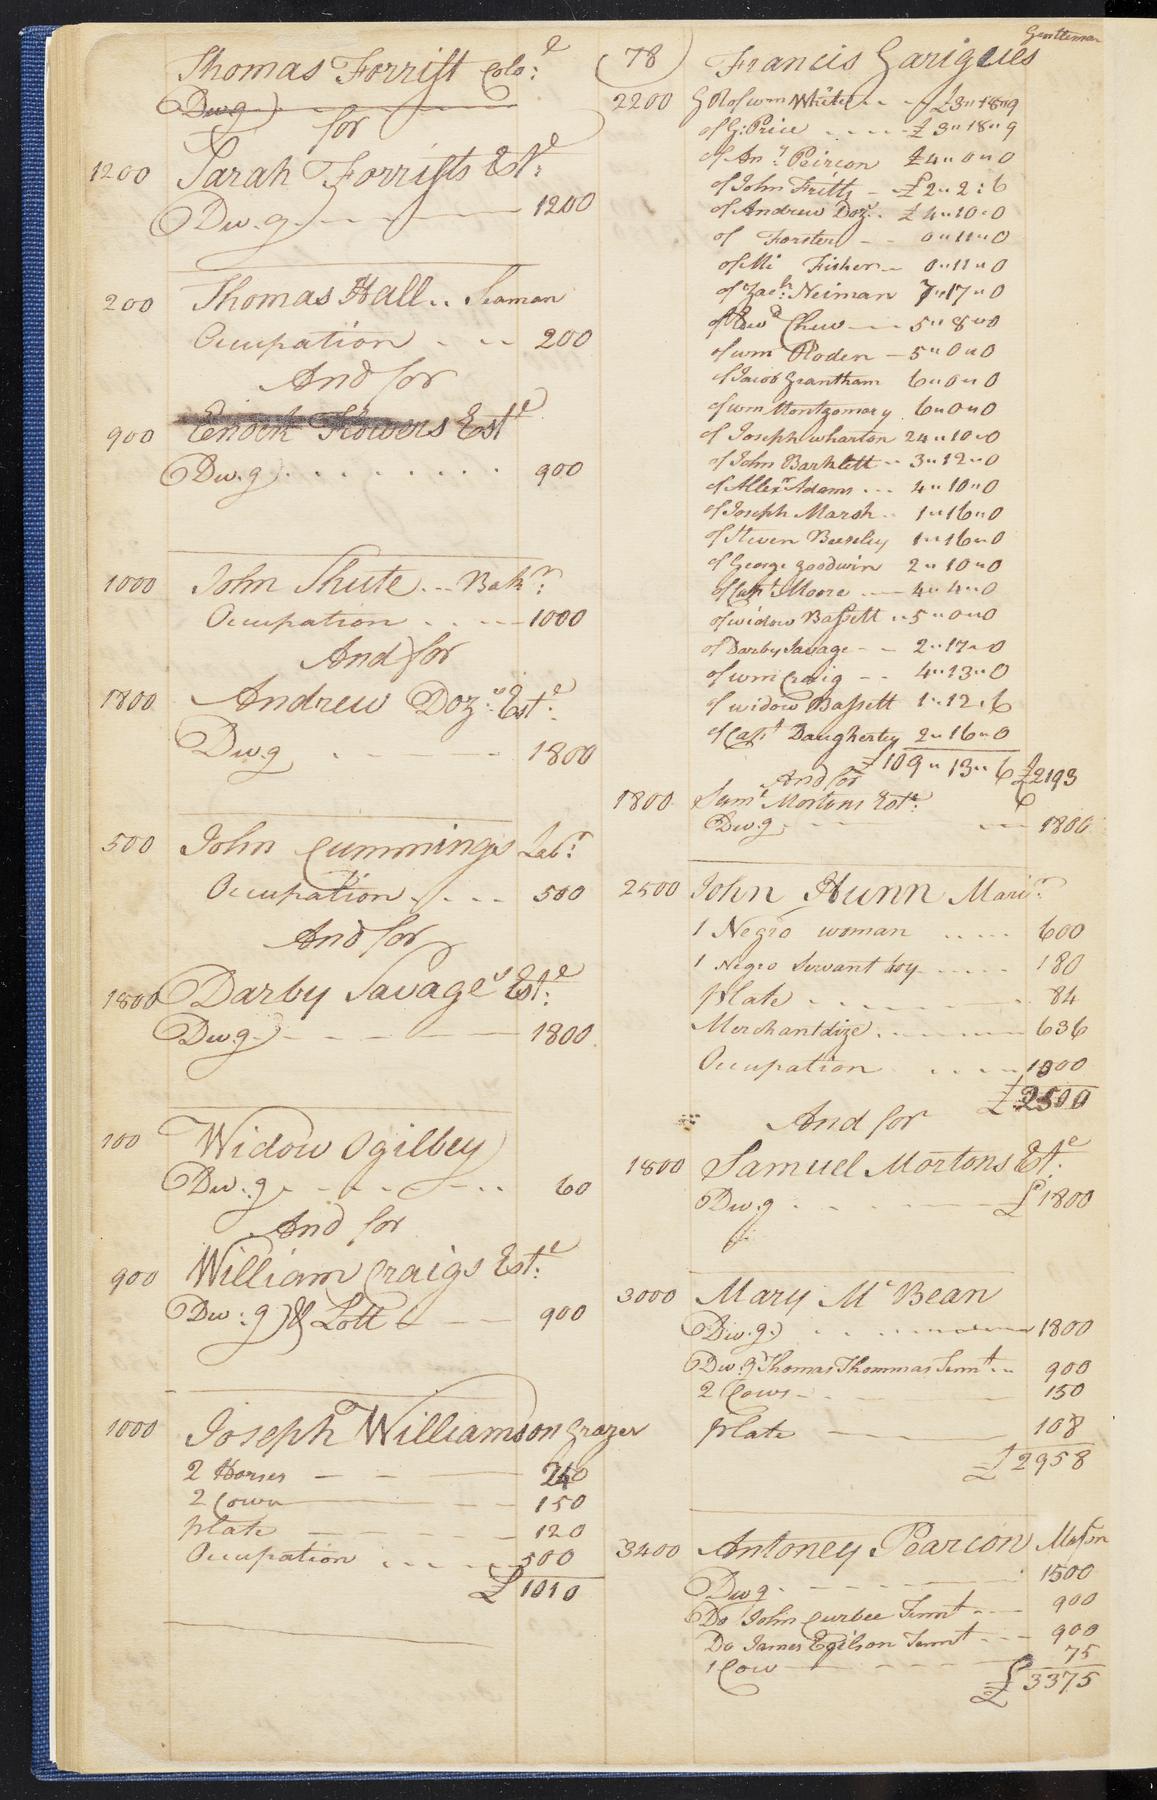 Thomas Forrist Colo:e
Dwg
for
1200 Sarah Forrists Est:e
Dw.g. 1200
200 Thomas Hall .. Seaman
Occupation 200
And for
900 Enoch Flowers Este
Dw.g 900
1000 John Shute ... Bak:r
Occupation 1000
And for
1800 Andrew Doz:s Est:e
Dwg 1800
500 John Cummings Lab:r
Occupation 500
And for
1800 Darby Savage's Est:e
Dwg 1800
100 Widow Ogilbey
Dw.g 60
And for
900 William Craigs Est:e
Dw:g & Lott 900
1000 Joseph Williamson Grazer
2 Horses 240
2 Cows 150
plate 120
Occupation 500
£1010
78 Francis Garigues Gentleman
2200 G Rt of wm White £3"18"9
of G: Price £3"18"9
of An:y Peircon £4"0"0
of John Fritty £2"2:6
of Andrew Doz £4"10"0
of Forster 0"11"0
of Mi Fisher 0"11"0
of Zach: Neiman 7"17"0
of Chew 5"8"0
of wm Roden 5"0"0
of Jacob Grantham 6"0"0
of wm Montgomary 6"0"0
of Joseph wharton 24"10"0
of John Barklett 3"12"0
of Allexr Adams 4"10"0
of Joseph Marsh 1"16"0
of Steven Beesley 1"16"0
of George goodwin 2"10"0
of Capt Moore 4"4"0
of widow Bassett 5"0"0
of Darby Savage 2"17"0
of wm Craig 4"13"0
of widow Bassett 1"12"6
of Capt Daugherty 2"16"0
£109"13"6 £2193
And for 6
1800 Sam:l Mortons Este
Dw.g 1800
2500 John Hunn Mari:r
1 Negro woman 600
1 Negro Servant boy 180
plate 84
Merchantdize 636
Occupation 1000
£2500
And for
1800 Samuel Mortons Est:e
Dw.g £1800
3000 Mary Mc Bean
Dw.g. 1800
Dw.g Thomas Thommas Tennt 900
2 Cows 150
plate 108
£2958
3400 Antoney Pearcon Mason
Dwg 1500
Do John Curbee Tennt 900
Do James Egilson Tennt 900
1 Cow 75
£3375